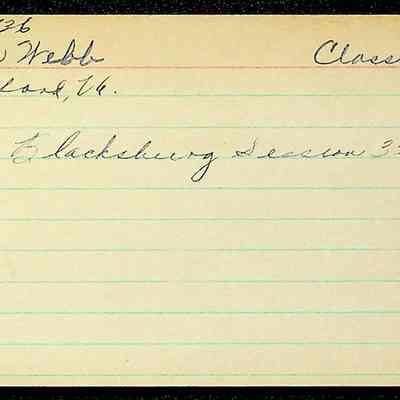 36
Webb Class
land, Va.
Blacksburg Session 3